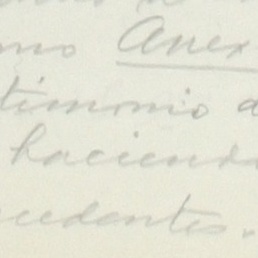 mo Anex
timonio d
haciend
cedantes.